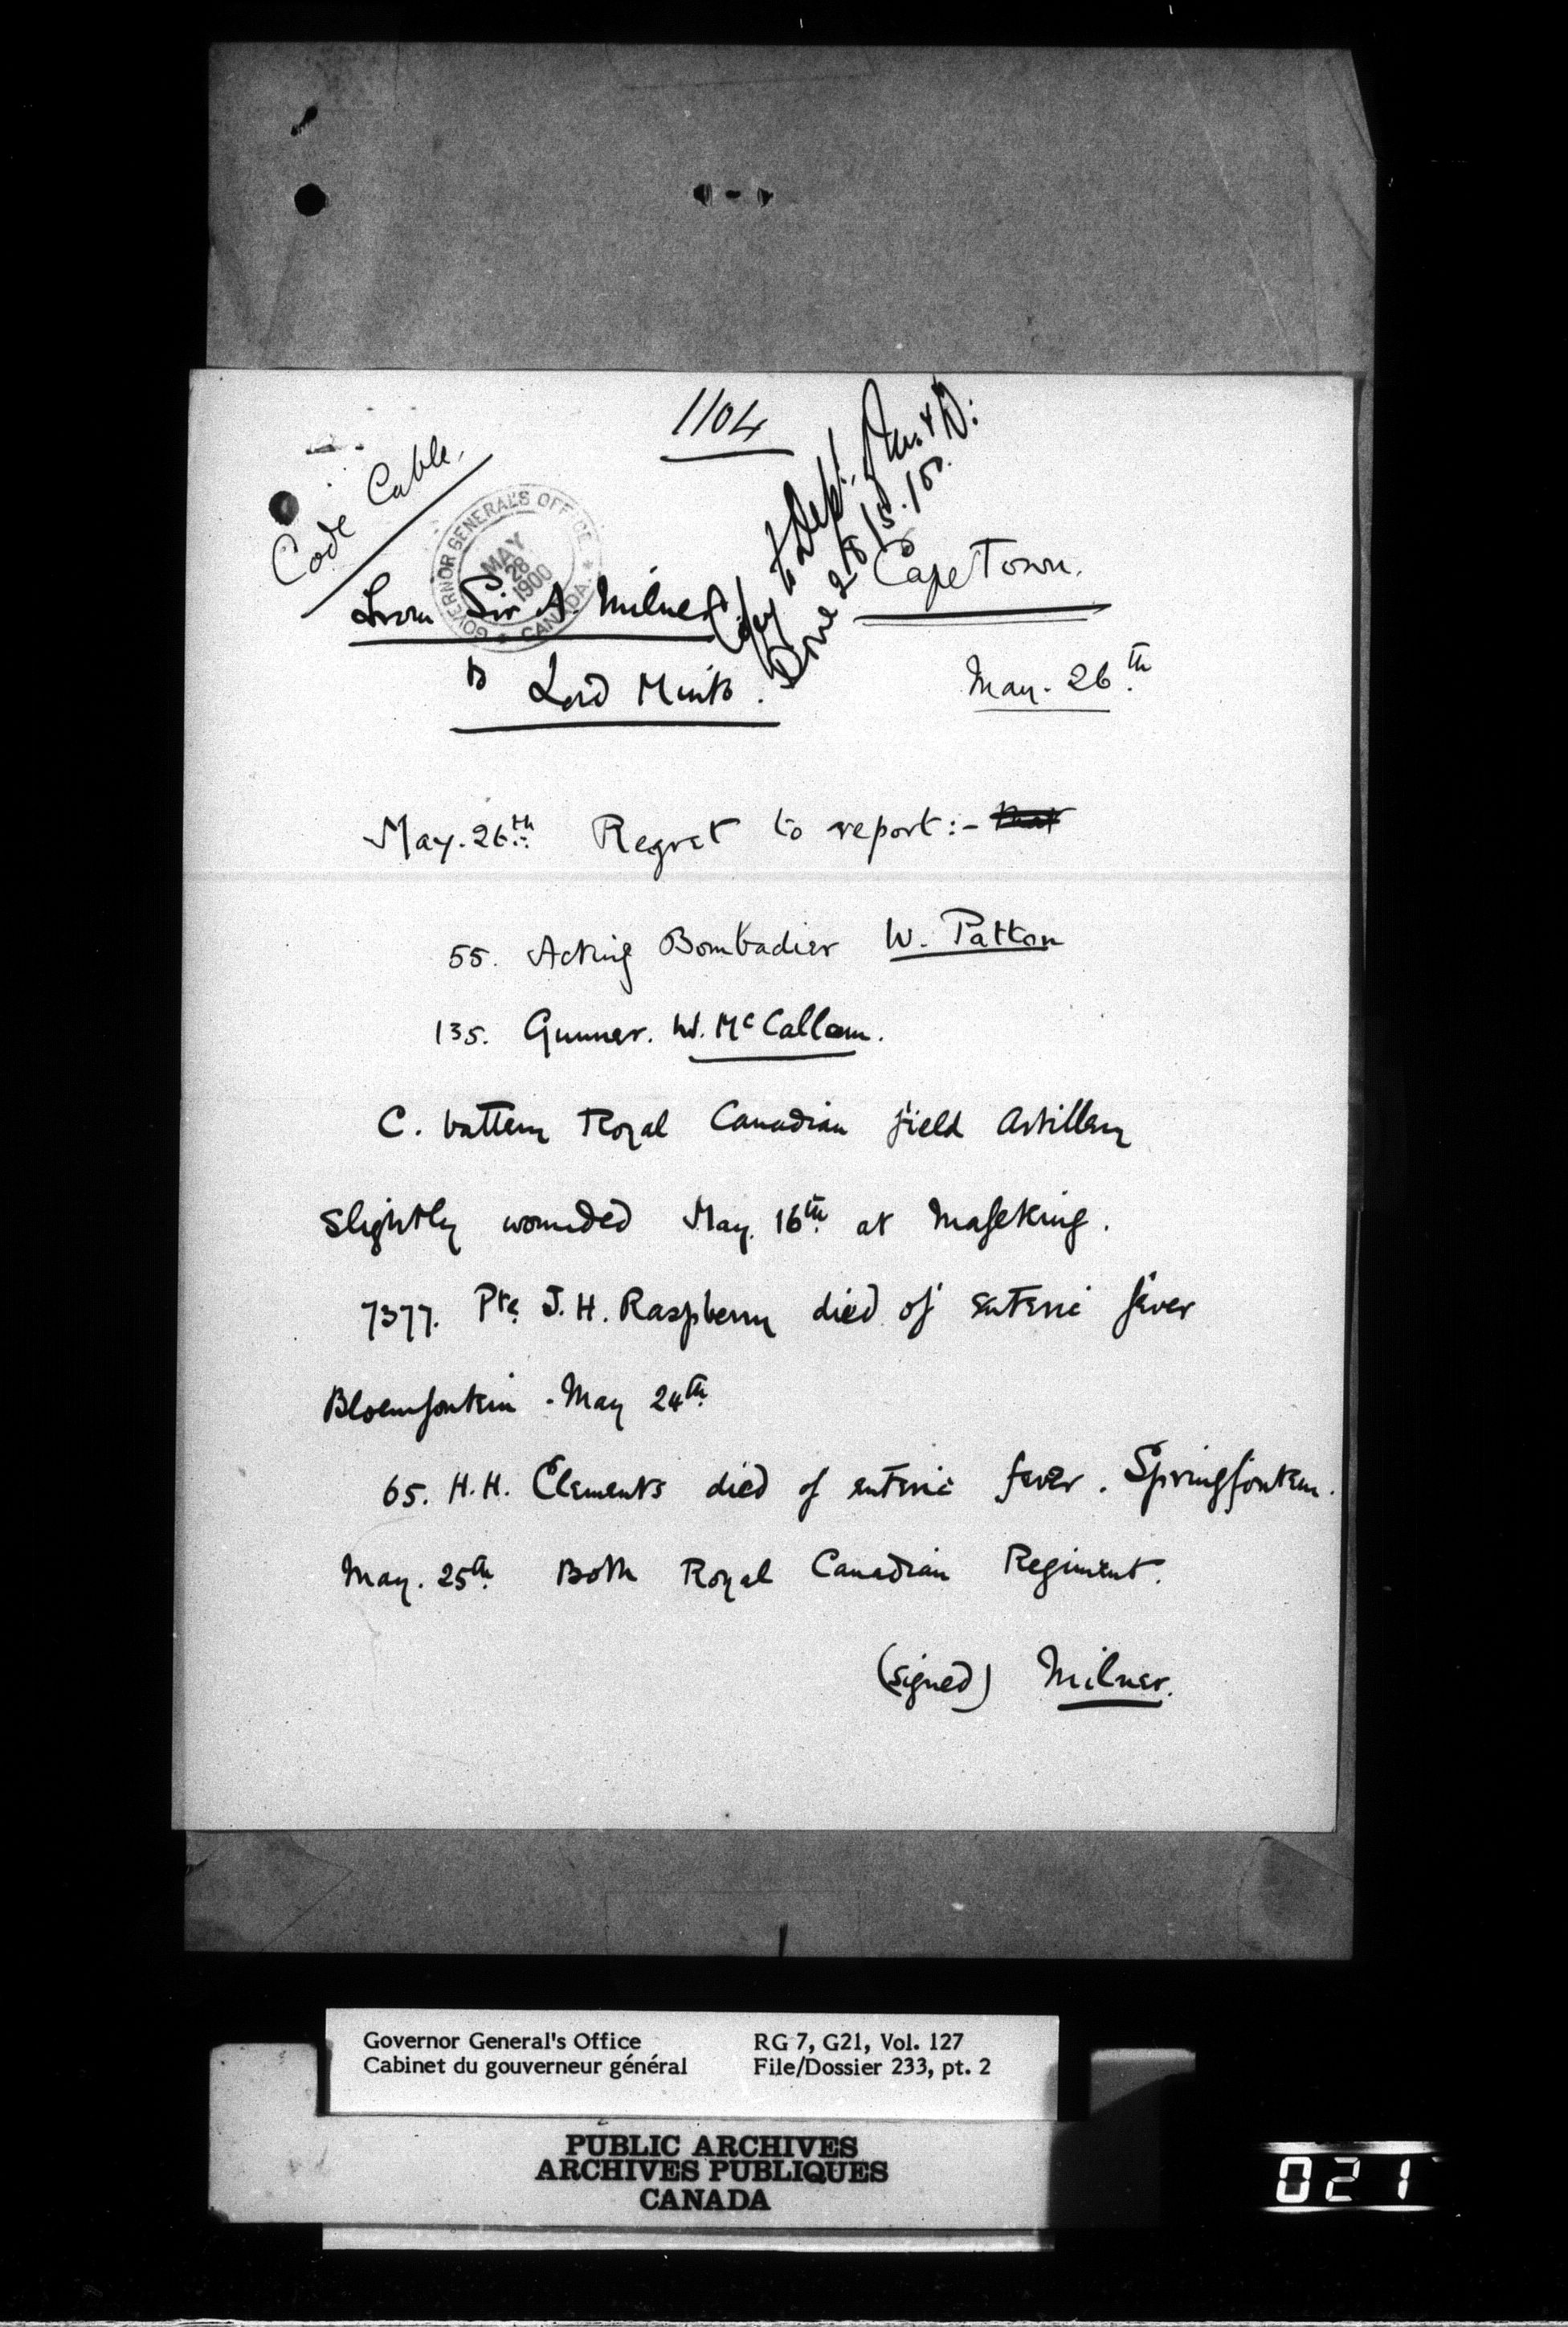 1104
Code Cable.
GOVERNOR GENERAL'S OFFICE
MAY
28
1900
CANADA
Copy to Dept.
Done 28/5/00.
Cape Town.
From Sir A. Milner
to Lord Minto.
May. 26th
May. 26th Regret to report:- that
55. Acting Bombadier W. Patton
135. Gunner. W. McCallum.
C. battery Royal Canadian field Artillery
slightly wounded May. 16th at Mafeking.
7377. Pte J. H. Raspberry died of enteric fever
Bloemfontein. May 24th
65. H. H. Clements died of enteric fever. Springfontein.
May. 25th Both Royal Canadian Regiment.
(signed) Milner.
Governor General's Office RG 7, G21, Vol. 127
Cabinet du gouverneur général File/Dossier 233, pt. 2
PUBLIC ARCHIVES
ARCHIVES PUBLIQUES
CANADA
021